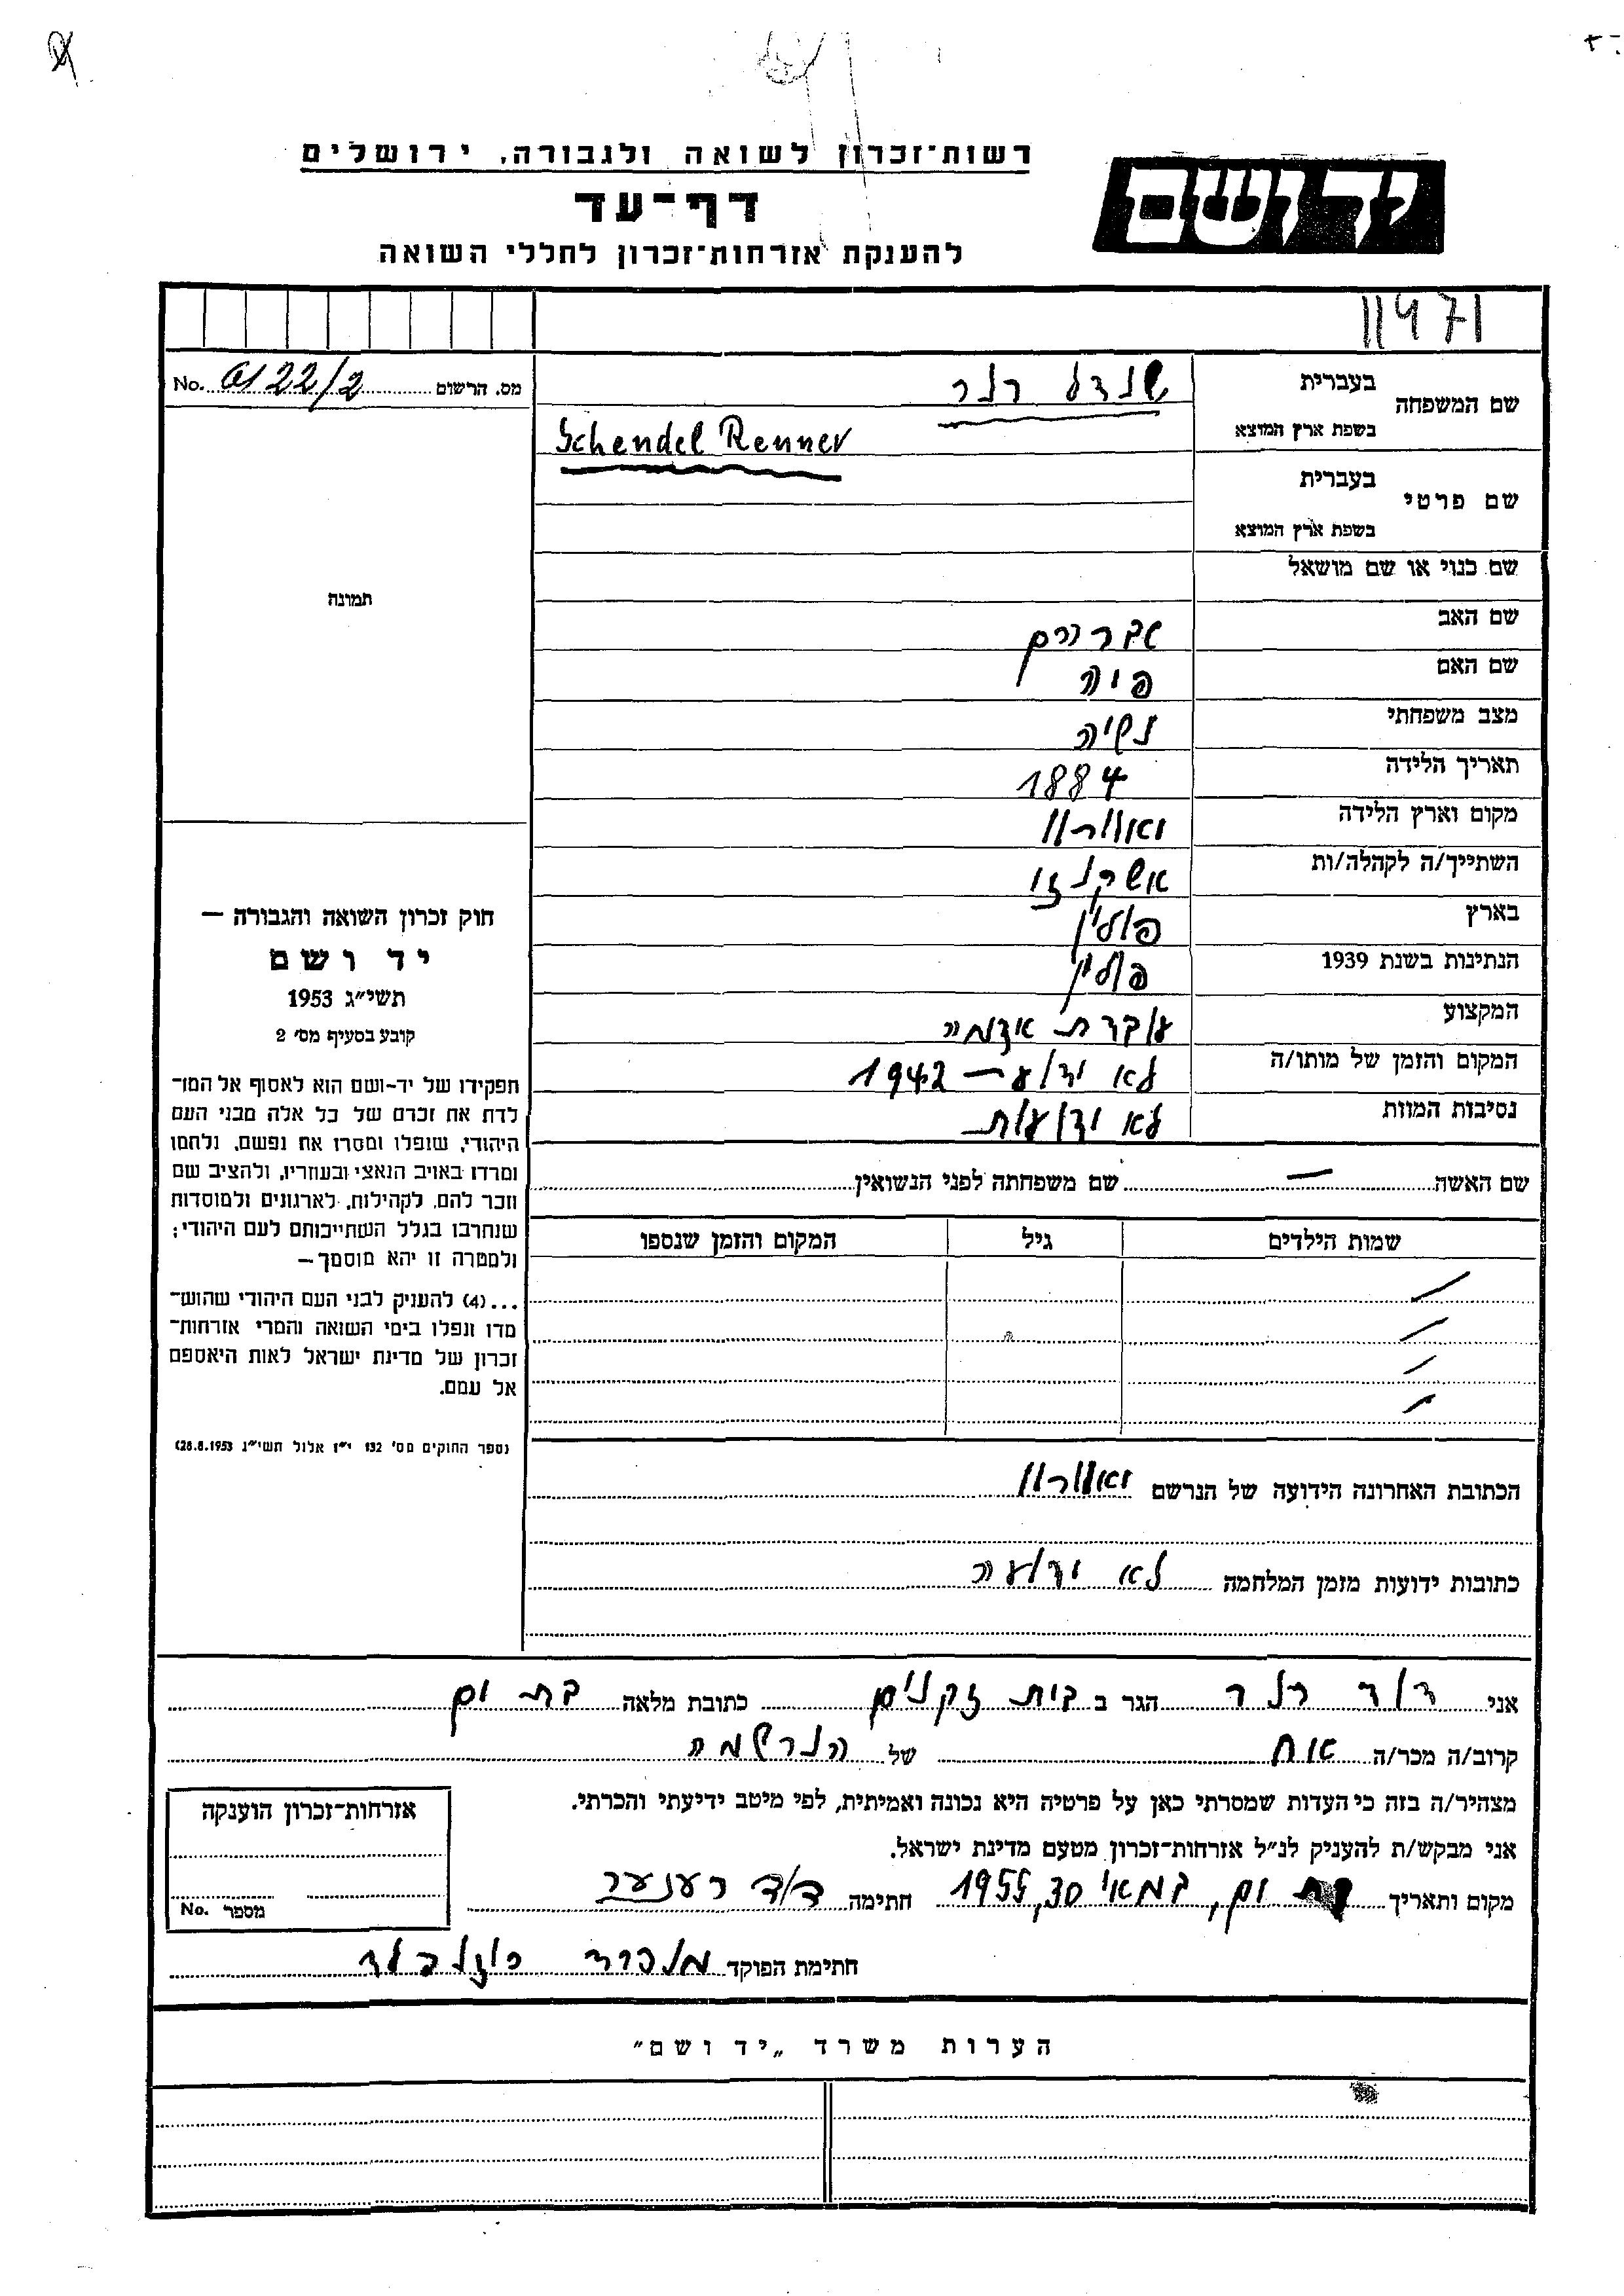 רשות־זכרון לשואה ולגבורה, ירושלים
יד ושם
דף־עד
להענקת אזרחות־זכרון לחללי השואה
11971
מס. הרשום 22/2 No.
שם המשפחה
בעברית שנדל רנר
בשפת ארץ המוצא Schendel Renner
שם פרטי
בעברית
בשפת ארץ המוצא
שם כנוי או שם מושאל
תמונה
שם האב אברהם
שם האם פיה
מצב משפחתי נשיה
תאריך הלידה 1884
מקום וארץ הלידה
השתייך/ה לקהלה/ות אשכנזי
בארץ פולין
הנתינות בשנת 1939 פולין
המקצוע עובדת אדמה
המקום והזמן של מותו/ה לא ידוע – 1942
נסיבות המוות לא ידועות
שם האשה — שם משפחתה לפני הנשואין
שמות הילדים גיל המקום והזמן שנספו
חוק זכרון השואה והגבורה —
יד ושם
תשי״ג 1953
קובע בסעיף מס׳ 2
תפקידו של יד־ושם הוא לאסוף אל המו־
לדת את זכרם של כל אלה מבני העם
היהודי, שנפלו ומסרו את נפשם, נלחמו
ומרדו באויב הנאצי ובעוזריו, ולהציב שם
וזכר להם, לקהילות, לארגונים ולמוסדות
שנחרבו בגלל השתייכותם לעם היהודי;
ולמטרה זו יהא מוסמך—
...(4) להעניק לבני העם היהודי שהוש־
מדו ונפלו בימי השואה והמרי אזרחות־
זכרון של מדינת ישראל לאות היאספם
אל עמם.
(ספר החוקים מס׳ 132 י״ז אלול תשי״ג 28.8.1953)
הכתובת האחרונה הידועה של הנרשם
כתובות ידועות מזמן המלחמה לא ידועה
אני דוד רנר הגר ב בית זקנים כתובת מלאה בת ים
קרוב/ה מכר/ה אח של הנרשמה
מצהיר/ה בזה כי העדות שמסרתי כאן על פרטיה היא נכונה ואמיתית, לפי מיטב ידיעתי והכרתי.
אני מבקש/ת להעניק לנ״ל אזרחות־זכרון מטעם מדינת ישראל.
מקום ותאריך בת ים, במאי 30, 1955 חתימה דוד רענער
חתימת הפוקד
אזרחות־זכרון הוענקה
מספר No.
הערות משרד „יד ושם״